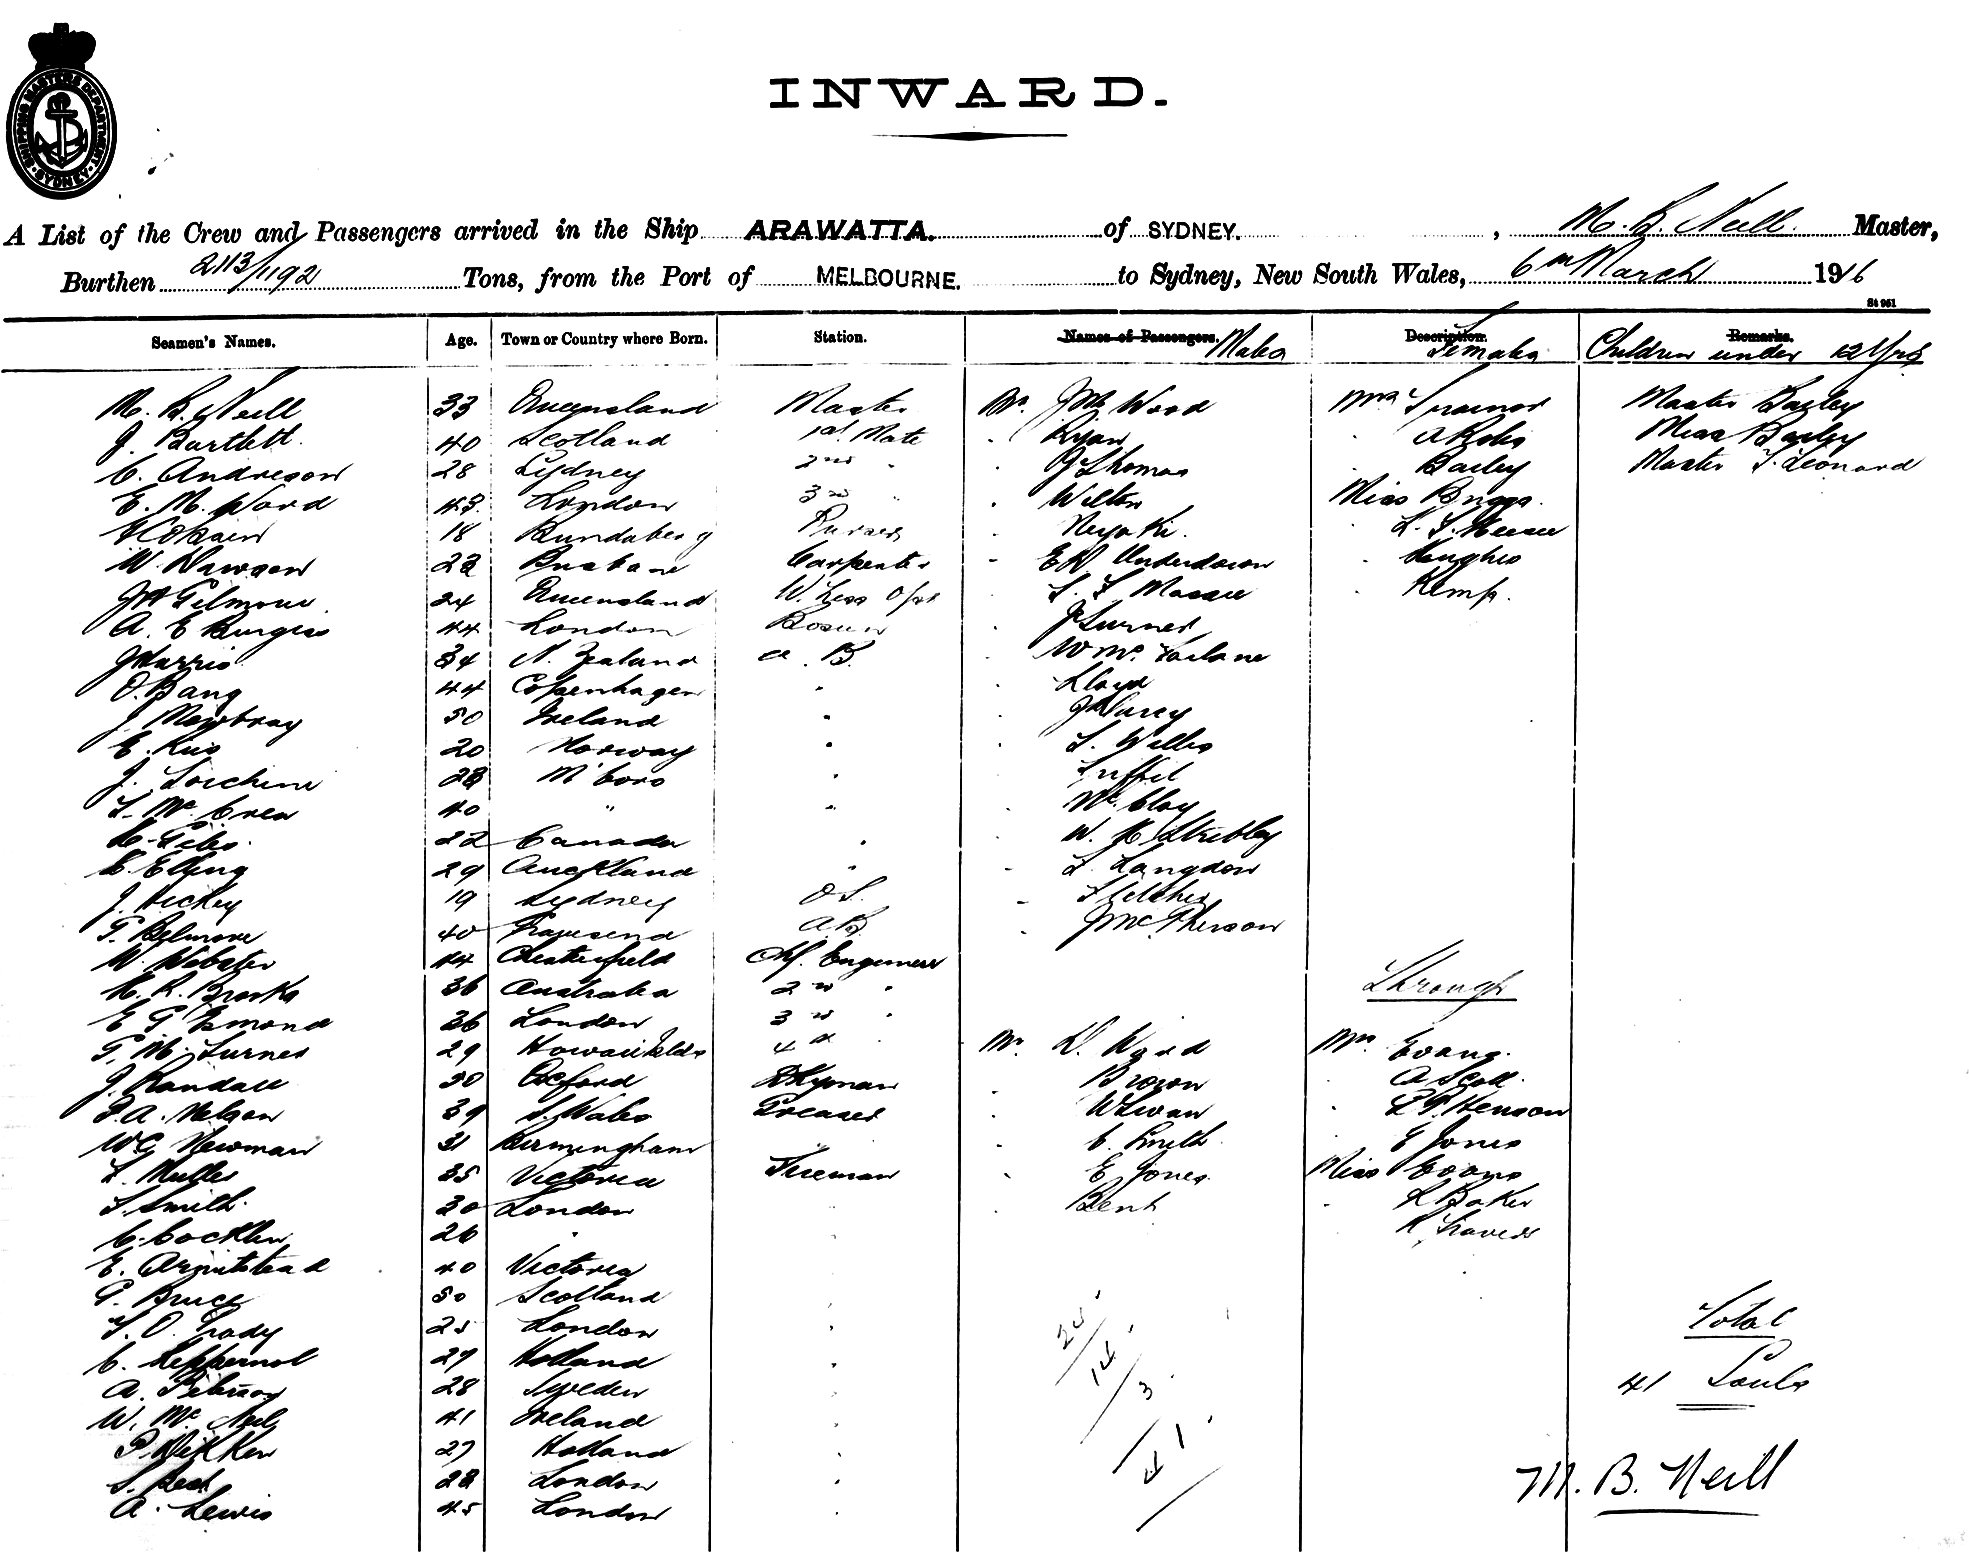 SHIPPING MASTERS DEPARTMENT. SYDNEY.
INWARD.
A List of the Crew and Passengers arrived in the Ship ARAWATTA. of SYDNEY. , M. B. Neill. Master,
Burthen 2113/1192 Tons, from the Port of MELBOURNE. to Sydney, New South Wales, 6th March 1916
St 961
Seamen's Names. Age. Town or Country where Born. Station. Names of Passengers. Males Description. Females Remarks. Children under 12 Yrs
M. B. Neill 33 Queensland Master Mr. Wood Mrs Trainor Master Bagley
J. Bartlett. 40 Scotland 1st Mate " Ryan " Miss Bagley
C. Anderson 28 Sydney 2nd " " J Thomas " Bailey Master T. Leonard
E. M. Ward 43 London 3rd " " Wilton Miss Briggs.
18 Bundaberg Purser "
W. Dawson Brisbane Carpenter " Underdown " Hughes
JH Gilmour 24 Queensland W. Less Optr " Massie " Kemp.
A. E Burgess 44 London Bosun " J Turner
J Harris 34 N. Zealand A. B. " W Mc. Farlane
O. Bang 44 Copenhagen " " Lloyd
J. Mowbray 50 Ireland " " J Darcy
20 Norway " "
J. 28 M'boro "
Mc. Crea 40 " " " Mc. Clay
22 Canada " " W.
C. Elling 29 Auckland " " Langdon
J. Hickey 19 Sydney O S. " Fletcher
G. Belmore 40 Gravesend A.B. " J Mc. Pherson
W. Webster 44 Chesterfield Chf. Engineer
H. R. Brooks 36 Australia 2nd " Through
E G Esmond 36 London 3rd "
G. M. Turner 29 4th " Mr. D. Ward Mrs Evans.
J. Randall 30 Oxford Dkyman " Brown " A Scott.
A. Nelson 39 S. Wales Greaser " W Swan " Henson
WG Newman 31 Birmingham " C. Smith. " E Jones
L. Muller 35 Victoria Fireman " E Jones. Miss Evans
Smith. 30 London " Bent " Baker
26 " " Travers
E. Armitstead 40 Victoria "
G. Bruce 50 Scotland "
T. O. Grady 25 London " Total
27 Holland " 24 / 14 / 3 / 41 41 Souls
A. 28 Sweden "
W. Mc. Neil 41 Ireland "
27 Holland "
28 London " M. B. Neill
A. Lewis 45 London "